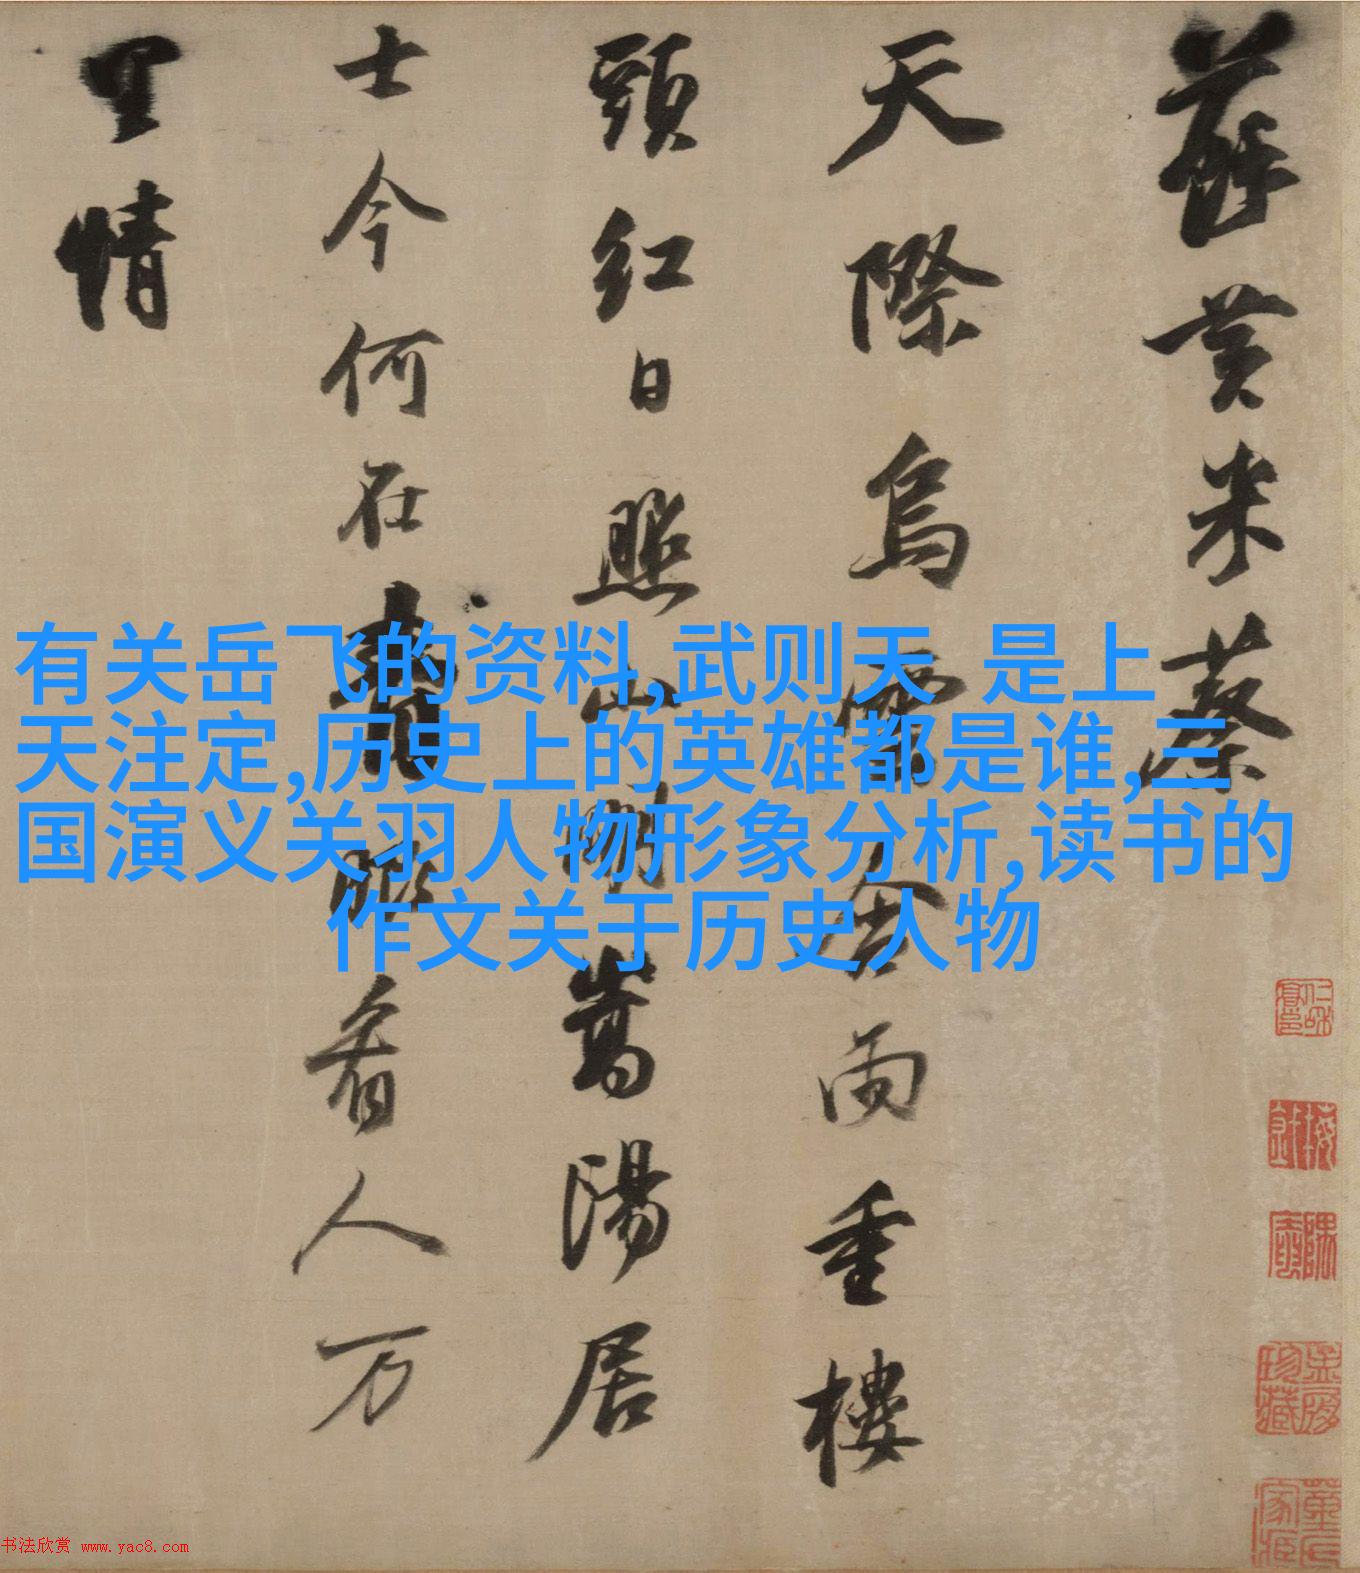 蘇黄米蔡
天際烏雲含雨重樓
頭紅日照山明嵩陽居
士今何在青眼看人万
里情
有关岳飞的资料,武则天 是上
天注定,历史上的英雄都是谁,三
国演义关羽人物形象分析,读书的
作文关于历史人物
书法欣赏 www.yac8.com